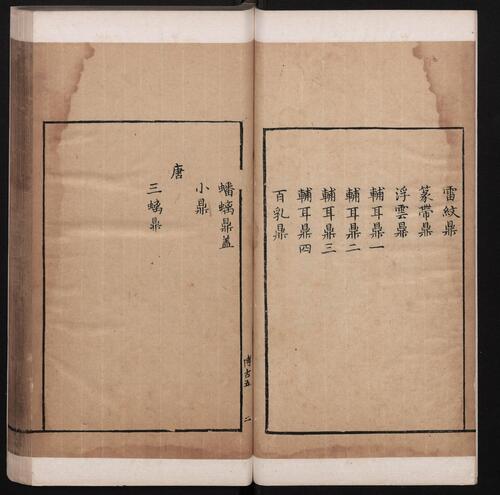 雷紋鼎
篆帶鼎
浮雲鼎
輔耳鼎一
輔耳鼎二
輔耳鼎三
輔耳鼎四
百乳鼎
博古五 二
蟠螭鼎蓋
小鼎
唐
三螭鼎